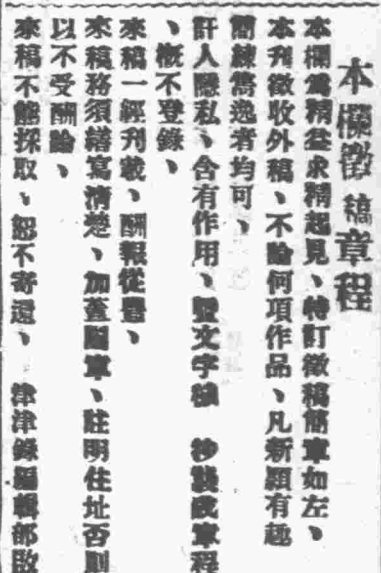 本欄徵稿章程
本欄爲精益求精起見、特訂徵稿簡章如左、
本刊徵收外稿、不論何項作品、凡新穎有趣
簡練雋逸者均可、
訐人隱私、含有作用、暨文字 抄襲 章程
、概不登錄、
來稿一經刊載、酬報從豐、
來稿務須繕寫清楚、加蓋圖章、註明住址否則
以不受酬論、
來稿不能採取、恕不寄還、 津津錄編輯部啟